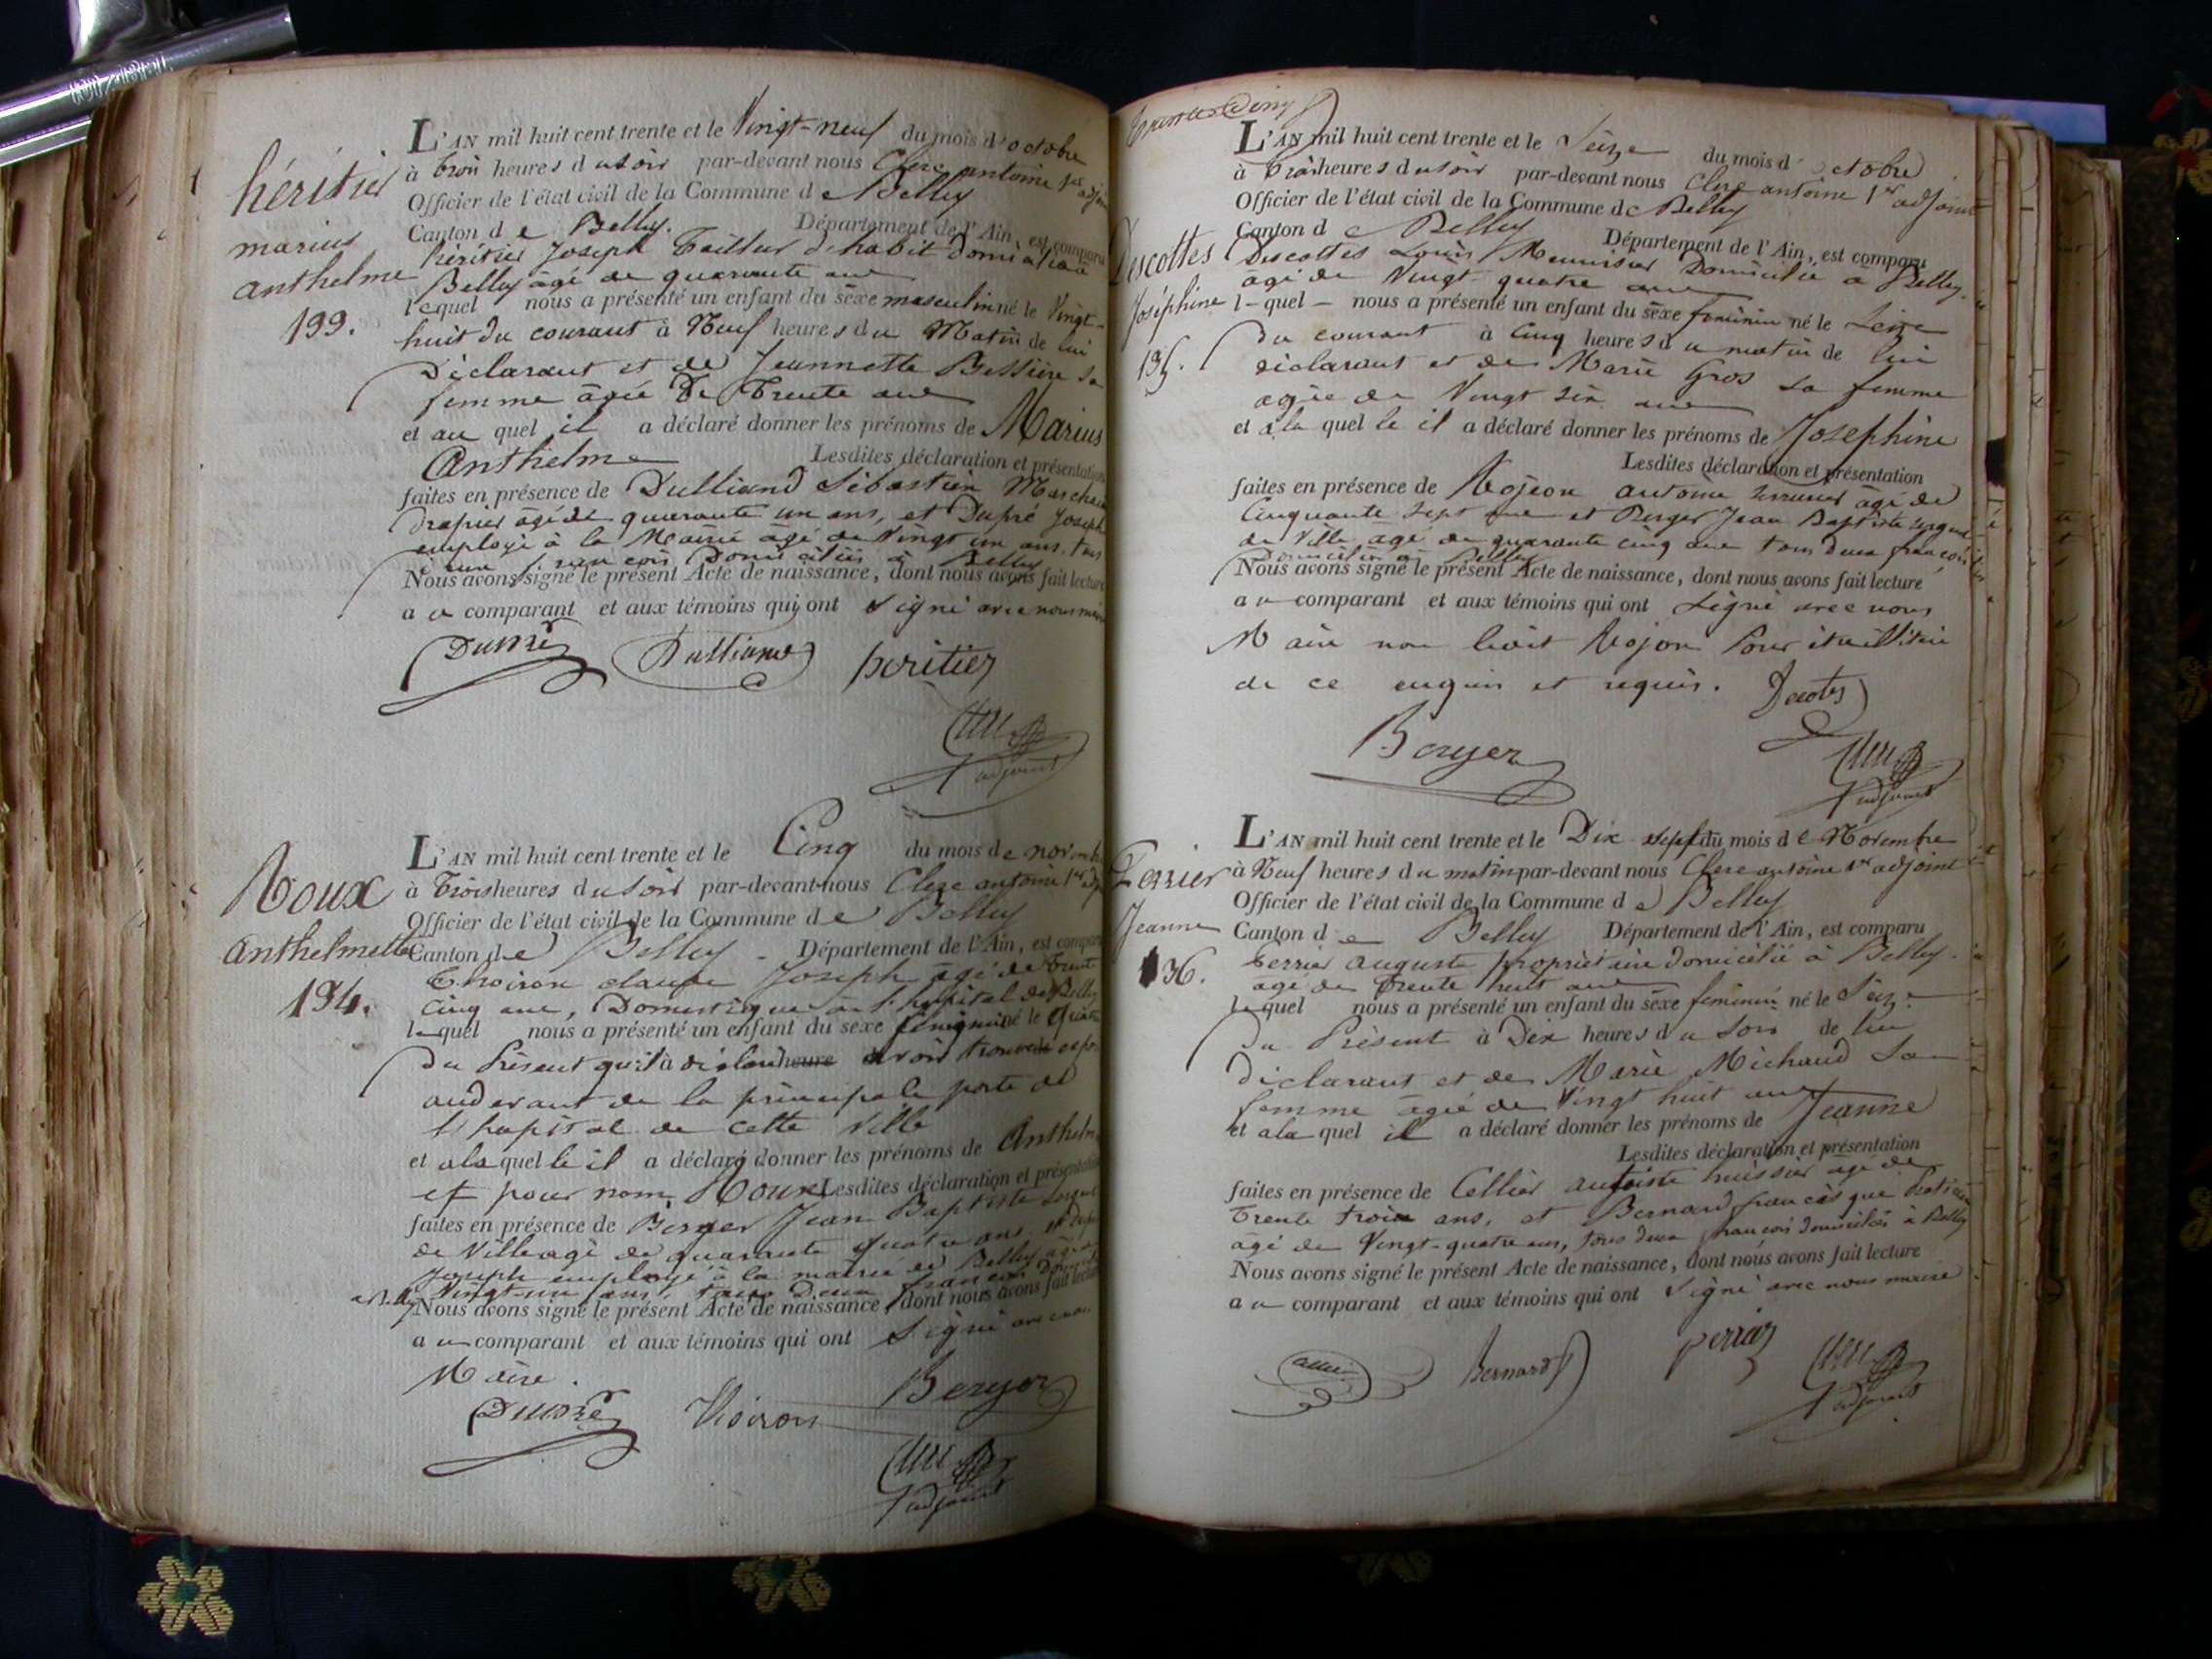 L'AN mil huit cent trente et le Vingt-neuf du mois d'octobre
à trois heures du soir par-devant nous Clerc antoine 1er adj
Officier de l'état civil de la Commune de Belley
Canton de Belley. Département de l'Ain, est comparu
héritier Joseph Tailleur d'habit Domicilié à
Belley âgé de quarante ans
lequel nous a présenté un enfant du sexe masculin né le Vingt-
huit du courant à Neuf heures du Matin de lui
Déclarant et de Jeannette Bessière sa
femme âgée De Trente ans
et au quel il a déclaré donner les prénoms de Marius
Anthelme Lesdites déclaration et présentation
faites en présence de Dulliand Sébastien Marchand
Drapier âgé de quarante un ans, et Dupré Joseph
employé à la Mairie âgé de Vingt un ans, tous
deux françois Domiciliés à Belley
Nous avons signé le présent Acte de naissance, dont nous avons fait lecture
au comparant et aux témoins qui ont signé avec nous
héritier
marius
anthelme
199.
Dupré Dulliand heritier
Clerc
adjoint
L'AN mil huit cent trente et le Cinq du mois de novembre
à Trois heures du soir par-devant nous Clerc antoine 1er adj
Officier de l'état civil de la Commune de Belley
Canton de Belley - Département de l'Ain, est comparu
Thoiron claude Joseph âgé de trente
Cinq ans, Domestique à l'hopital de Belley
lequel nous a présenté un enfant du sexe féminin né le quatre
Du Présent qu'il a déclaré heure avoir trouvé expo
au devant de la principale porte de
l'hopital de cette Ville
et à la quelle il a déclaré donner les prénoms de Anthelm
et pour nom Roux Lesdites déclaration et présentation
faites en présence de Berger Jean Baptiste Sergent
de Ville âgé de quarante quatre ans et Dupré
Joseph employé à la mairie de Belley âgé de
Vingt-un ans, tous Deux françois
Nous avons signé le présent Acte de naissance, dont nous avons fait lecture
au comparant et aux témoins qui ont signé avec nous
Maire.
Roux
Anthelmette
194.
Dupré Thoiron Berger
Clerc
adjoint
L'AN mil huit cent trente et le Seize du mois d'octobre
à Trois heures du soir par-devant nous Clerc antoine 1er adjoint
Officier de l'état civil de la Commune de Belley
Canton de Belley Département de l'Ain, est comparu
Descottes Louis Menuisier Domicilié à Belley.
âgé de Vingt-quatre ans
l-quel - nous a présenté un enfant du sexe féminin né le Seize
du courant à Cinq heures du matin de lui
déclarant et de Marie Gros sa femme
agée de Vingt six ans
et à la quelle il a déclaré donner les prénoms de Josephine
Lesdites déclaration et présentation
faites en présence de Rojeon antoine serrurier âgé de
Cinquante sept ans et Berger Jean Baptiste sergent
de Ville âgé de quarante cinq ans tous deux françois
Domiciliés à Belley
Nous avons signé le présent Acte de naissance, dont nous avons fait lecture
au comparant et aux témoins qui ont signé avec nous
Maire non ledit Rojon Pour être illitéré
de ce enquis et requis. Decotes
Descottes
Joséphine
195.
Berger
Clerc
adjoint
L'AN mil huit cent trente et le Dix-sept du mois de Novembre
à Neuf heures du matin par-devant nous Clerc antoine 1er adjoint
Officier de l'état civil de la Commune de Belley
Canton de Belley Département de l'Ain, est comparu
Perrier auguste propriétaire domicilié à Belley.
âgé de Trente huit ans
lequel nous a présenté un enfant du sexe féminin né le Seize
Du Présent à Dix heures du Soir de lui
Déclarant et de Marie Michaud Sa
femme âgée de Vingt huit ans
et à la quel il a déclaré donner les prénoms de Jeanne
Lesdites déclaration et présentation
faites en présence de Cellier huissier âgé de
Trente trois ans, et Bernard francisque Praticien
âgé de Vingt-quatre ans, tous deux françois domiciliés à Belley
Nous avons signé le présent Acte de naissance, dont nous avons fait lecture
au comparant et aux témoins qui ont signé avec nous maire
Perrier
Jeanne
196.
Bernard perrier
Clerc
adjoint